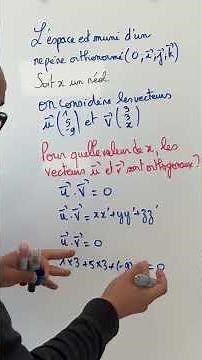 L'espace est muni d'un
repère orthonormé (O, i⃗, j⃗, k⃗)
Soit x un réel
on considère les vecteurs
u⃗ (1 5 -9) et v⃗ (3 3 x)
Pour quelle valeur de x, les
vecteurs u⃗ et v⃗ sont orthogonaux?
u⃗ . v⃗ = 0
u⃗ . v⃗ = xx' + yy' + zz'
u⃗ . v⃗ = 0
1x3+5x3+(-9) = 0